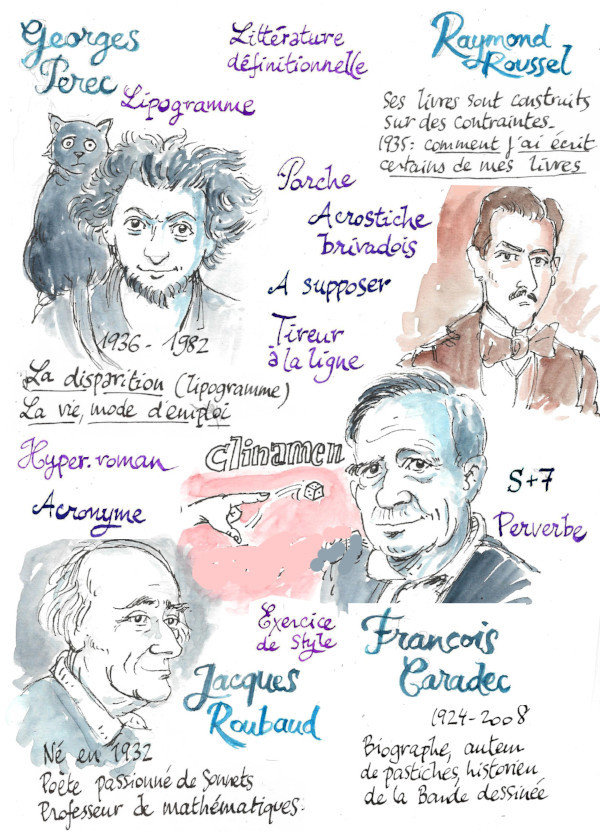 Georges
Perec
Lipogramme
Littérature
définitionnelle
Raymond
Roussel
Ses livres sont construits
sur des contraintes_
1935: comment j'ai écrit
certains de mes livres
Porche
Acrostiche
brivadois
A supposer
Tireur
à la ligne
1936 - 1982
La disparition (lipogramme)
La vie, mode d'emploi
Hyper-roman
Acronyme
Clinamen
S+7
Perverbe
Exercice
de style
Jacques
Roubaud
Né en 1932
Poète passionné de Sonnets
Professeur de mathématiques.
François
Caradec
1924-2008
Biographe, auteur
de pastiches, historien
de la Bande dessinée